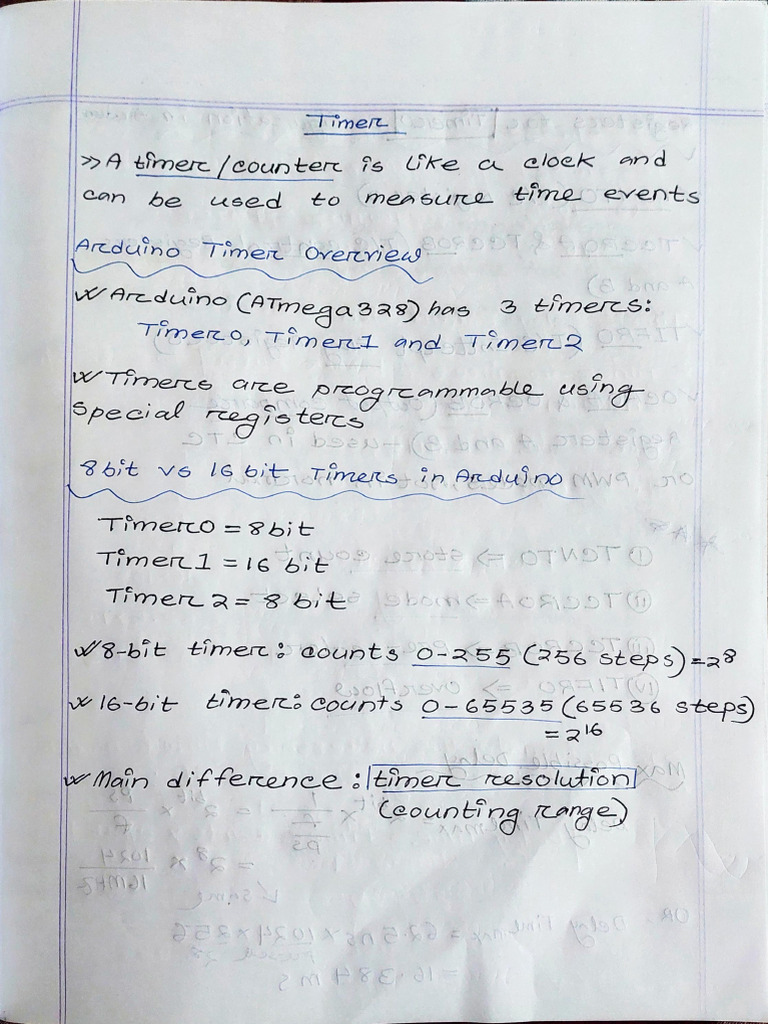 Timer
>> A timer/counter is like a clock and
can be used to measure time events
Arduino Timer Overview
✓ Arduino (ATmega328) has 3 timers:
Timer0, Timer1 and Timer2
✓ Timers are programmable using
special registers
8bit vs 16 bit Timers in Arduino
Timer0 = 8bit
Timer1 = 16 bit
Timer 2 = 8 bit
✓ 8-bit timer: counts 0-255 (256 steps) = 2⁸
✓ 16-bit timer: counts 0-65535 (65536 steps)
= 2¹⁶
✓ Main difference: timer resolution
(counting range)